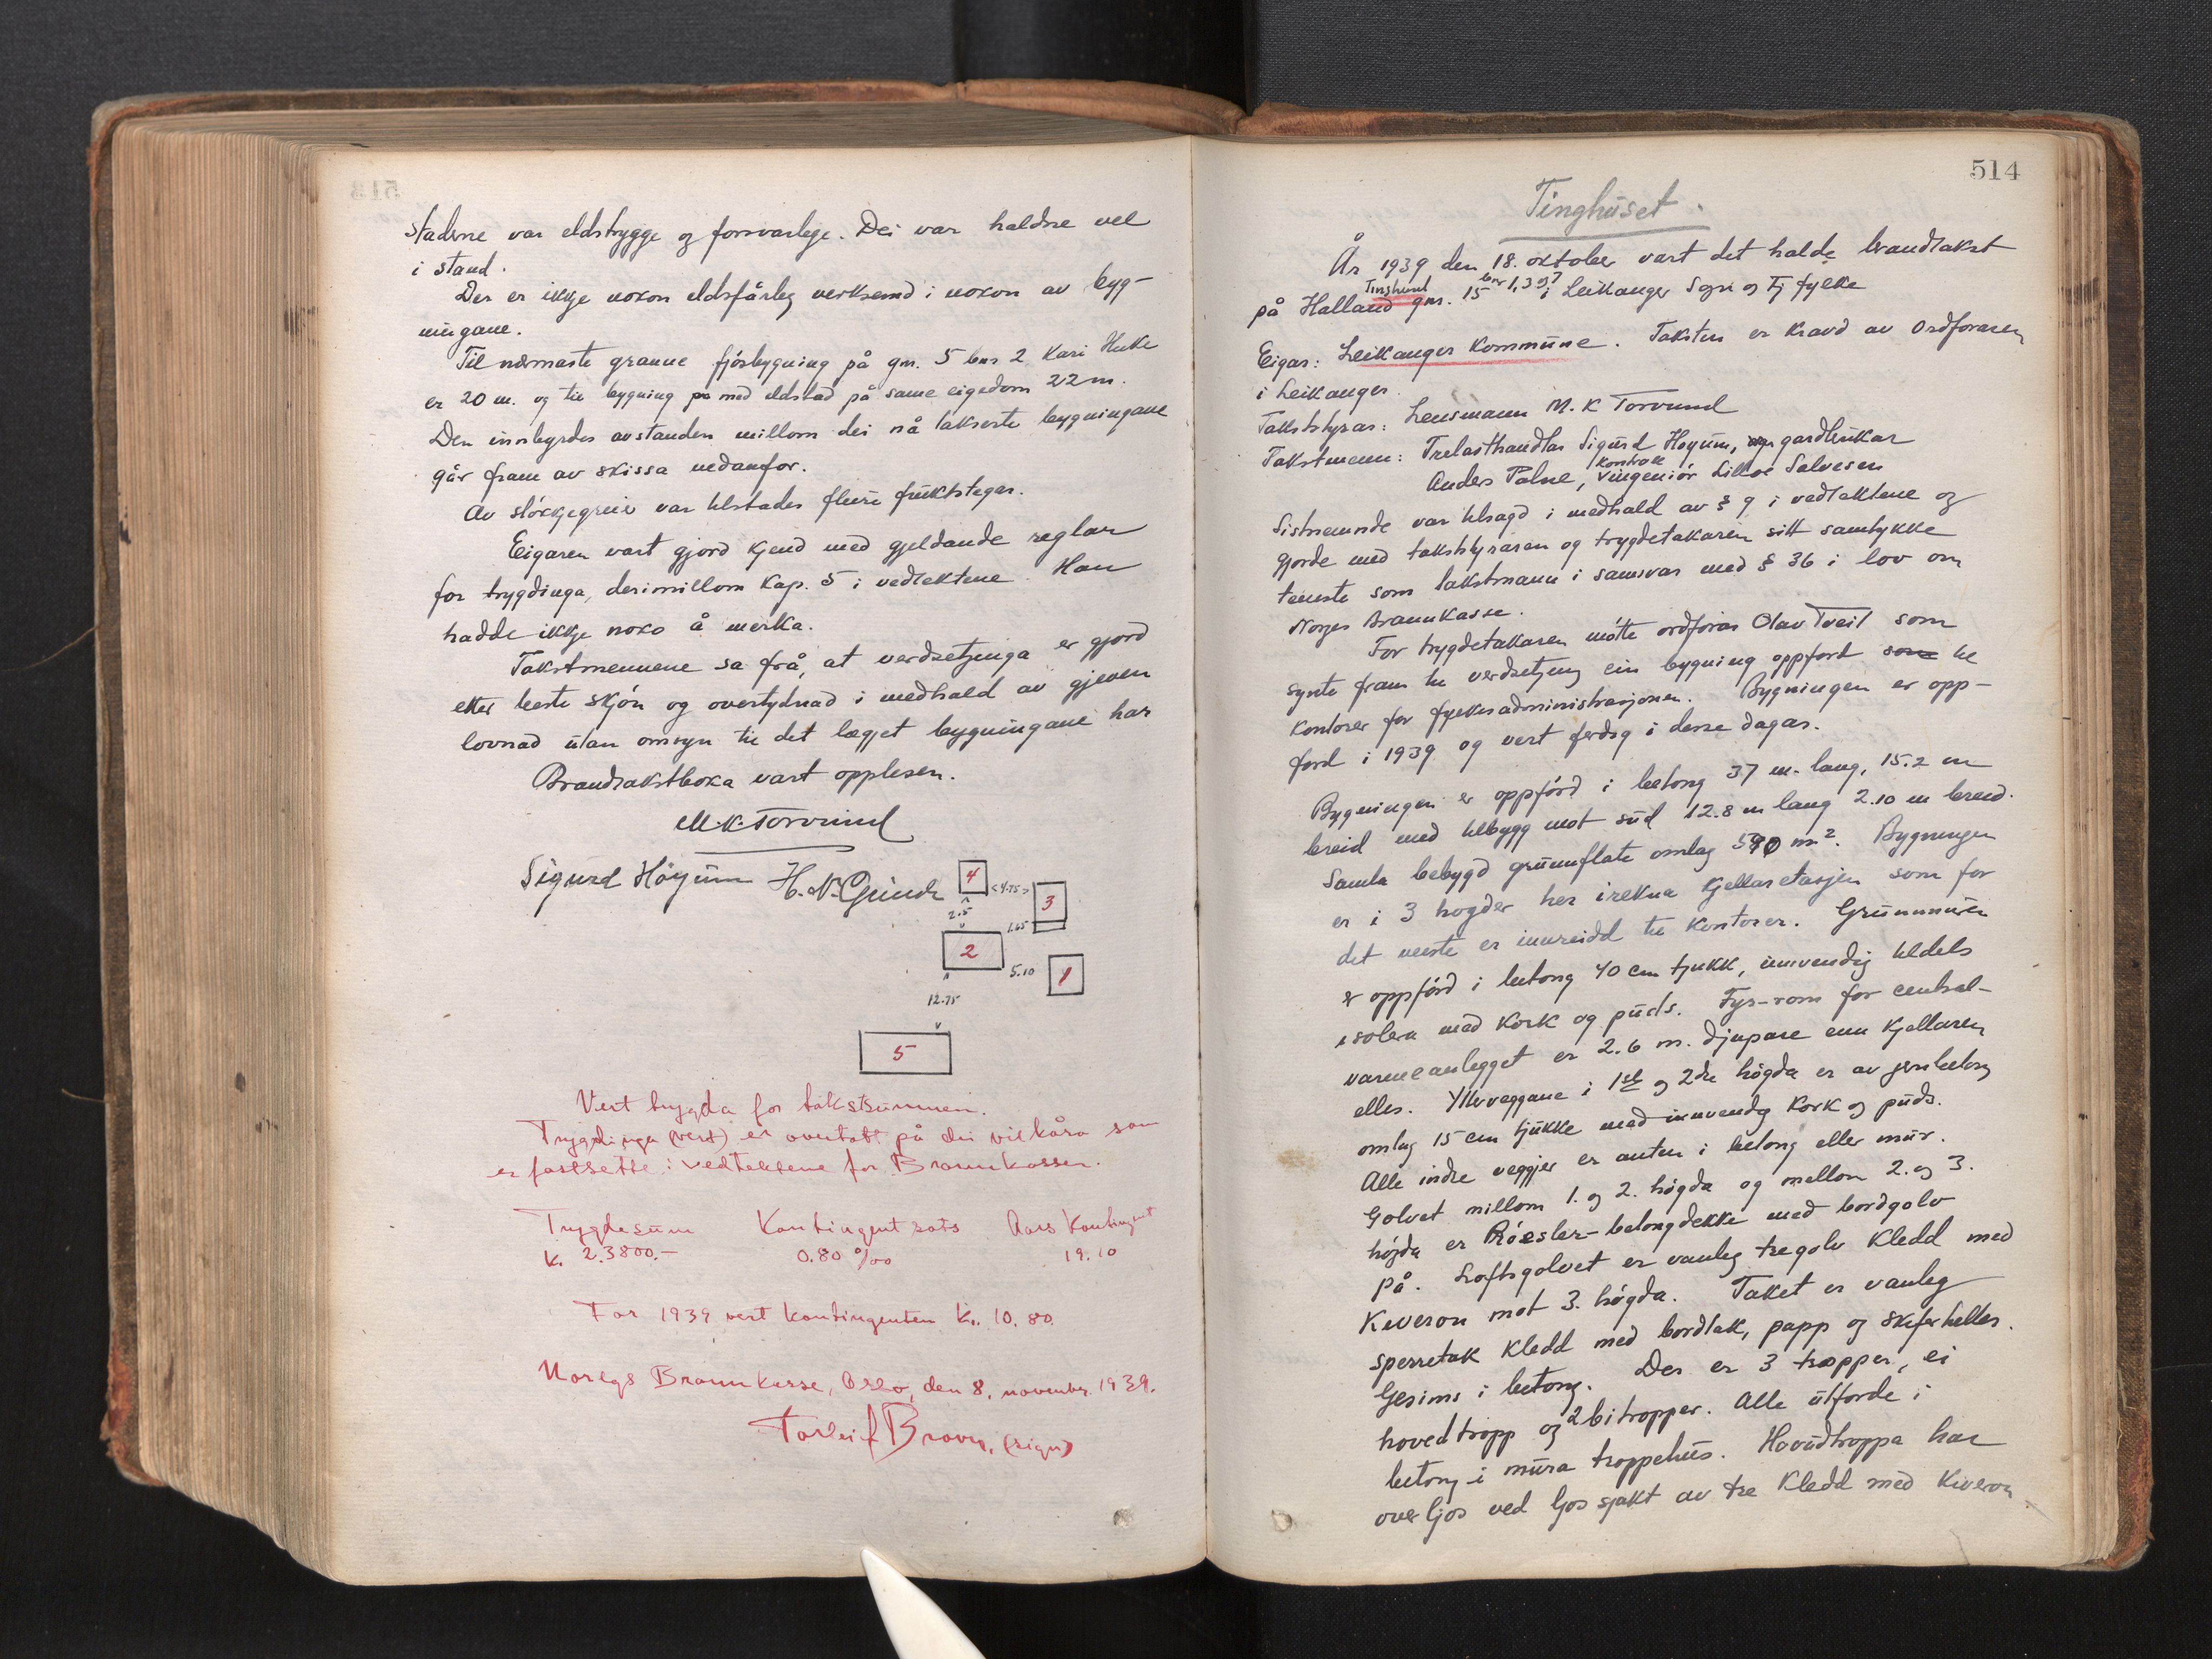 stadene var eldstrygge og forsvarlege. Dei var haldne vel
i stand.
Der er ikkje nokon eldsfårleg verksemd i nokon av byg-
ningane.
Til nærmaste granne fjósbygning på gnr. 5 bnr 2 Kari Huke
er 20 m. og til bygning på med eldstad på same eigedom 22 m.
Den innbyrdes avstanden millom dei nå takserte bygningane
går fram av skissa nedanfor.
Av sløkkjegreie var tilstades fleire frukttregar.
Eigaren vart gjord kjend med gjeldande reglar
for trygdinga, derimillom Kap. 5 i vedtektene. Han
hadde ikkje noko å merka.
Takstmennene sa frå, at verdsetjinga er gjord
etter beste skjøn og overtydnad i medhald av gjeven
lovnad utan omsyn til det lægjet bygningane har
Brandtakstboka vart opplesen.
M.K. Torvund
Sigurd Høyum H. N. Grinde
4
<4.75>
3
2.5
1.65
2
5.10
1
12.75
5
Vert trygda for takstsummen.
Trygdinga (vert) er overtatt på dei vilkåra som
er fastsette i vedtektene for Brannkassen.
Trygdesum Kontingent sats Aars Kontingent
K. 23800.— 0.80 ‰ 19.10
For 1939 vert kontingenten K. 10.80.
Noregs Brannkasse, Oslo, den 8. november 1939.
Torleif Brovn, (sign)
514
Tinghuset.
År 1939 den 18. oktober vart det halde brandtakst
på Halland Tinglund gnr. 15 bnr 1, 3 og 7 i Leikanger Sogn og Fj fylke
Eigar: Leikanger Kommune. Taksten er kravd av Ordføraren
i Leikanger
Takststyrar: Lensmann M. K Torvund
Takstmenn: Trelasthandlar Sigurd Høyum, gardbrukar
Anders Palne, kontroll ingeniør Lilloe Salvesen
Sistnemnde var tilsagd i medhald av § 9 i vedtektene og
gjorde med takststyraren og trygdetakaren sitt samtykke
teneste som takstmann i samsvar med § 36 i lov om
Norges Brannkasse.
For trygdetakaren møtte ordførar Olav Tveit som
synte fram til verdsetjing ein bygning oppført som til
Kontorer for fylkesadministrasjonen. Bygningen er opp-
ført i 1939 og vert ferdig i desse dagar.
Bygningen er oppførd i betong 37 m. lang, 15.2 m
breid med tilbygg mot sud 12.8 m lang 2.10 m breid.
Samla bebygd grunnflate omlag 590 m². Bygningen
er i 3 høgder her irekna kjellaretasjen som for
det meste er innreidd til Kontorer. Grunnmuren
er oppførd i betong 40 cm tjukk, innvendig tildels
isolera med Kork og puds. Fyr-rom for central-
varmeanlegget er 2.6 m. djupare enn kjellaren
elles. Ytterveggane i 1ste og 2dre høgda er av jernbetong
omlag 15 cm tjukke med innvendig Kork og puds.
Alle indre veggjer er anten i betong eller mur.
Golvet millom 1. og 2. høgda og mellom 2. og 3.
høgda er Róesler-betongdekke med bordgolv
på. Loftsgolvet er vanleg tregolv kledd med
Keveron mot 3. høgda. Taket er vanleg
sperretak kledd med bordtak, papp og skiferheller.
Gesims i betong. Der er 3 tropper, ei
hovedtropp og 2 bitropper. Alle utførde i
betong i mura troppehus. Hovudtroppa har
overljos ved ljos sjakt av tre kledd med Kiveron